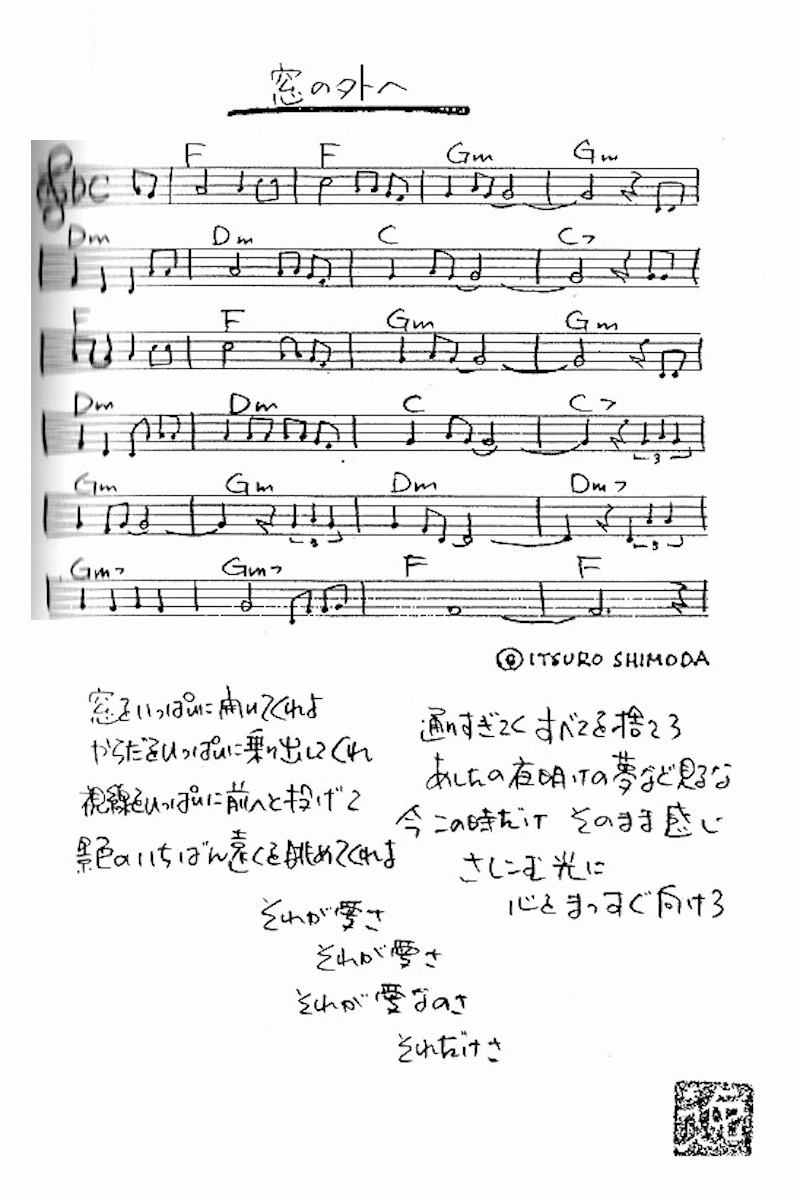 窓の外へ
F F Gm Gm
Dm Dm C C7
F F Gm Gm
Dm Dm C C7
3
Gm Gm Dm Dm7
3 3
Gm7 Gm7 F F
© ITSURO SHIMODA
窓をいっぱいに開けてくれよ
からだをいっぱいに乗り出してくれ
視線をいっぱいに前へと投げて
景色のいちばん遠くを眺めてくれよ
通りすぎてく すべてを捨てろ
あしたの夜明けの夢など見るな
今この時だけ そのまま感じ
さしこむ光に
心をまっすぐ向けろ
それが愛さ
それが愛さ
それが愛なのさ
それだけさ